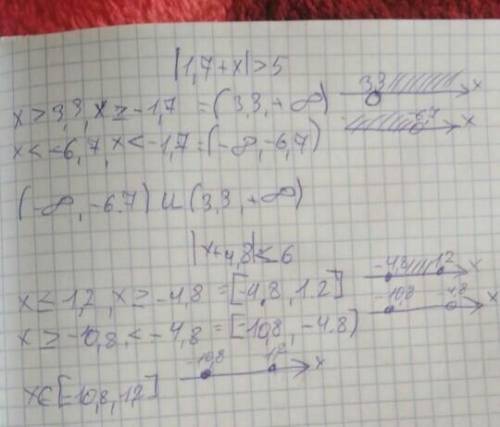 |1,7+x|>5
x>3,3, x≥-1,7 =(3,3,+∞) 3,3 x
x<-6,7, x<-1,7=(-∞,-6,7) -6,7 x
(-∞,-6.7) U (3,3,+∞)
|x+4,8|≤6
x≤1,2, x≥-4,8 =[-4,8, 1.2] -4,8 1,2 x
x≥-10,8<-4,8=[-10,8, -4.8) -10,8 -4,8 x
x∈[-10,8, 1,2] -10,8 1,2 x